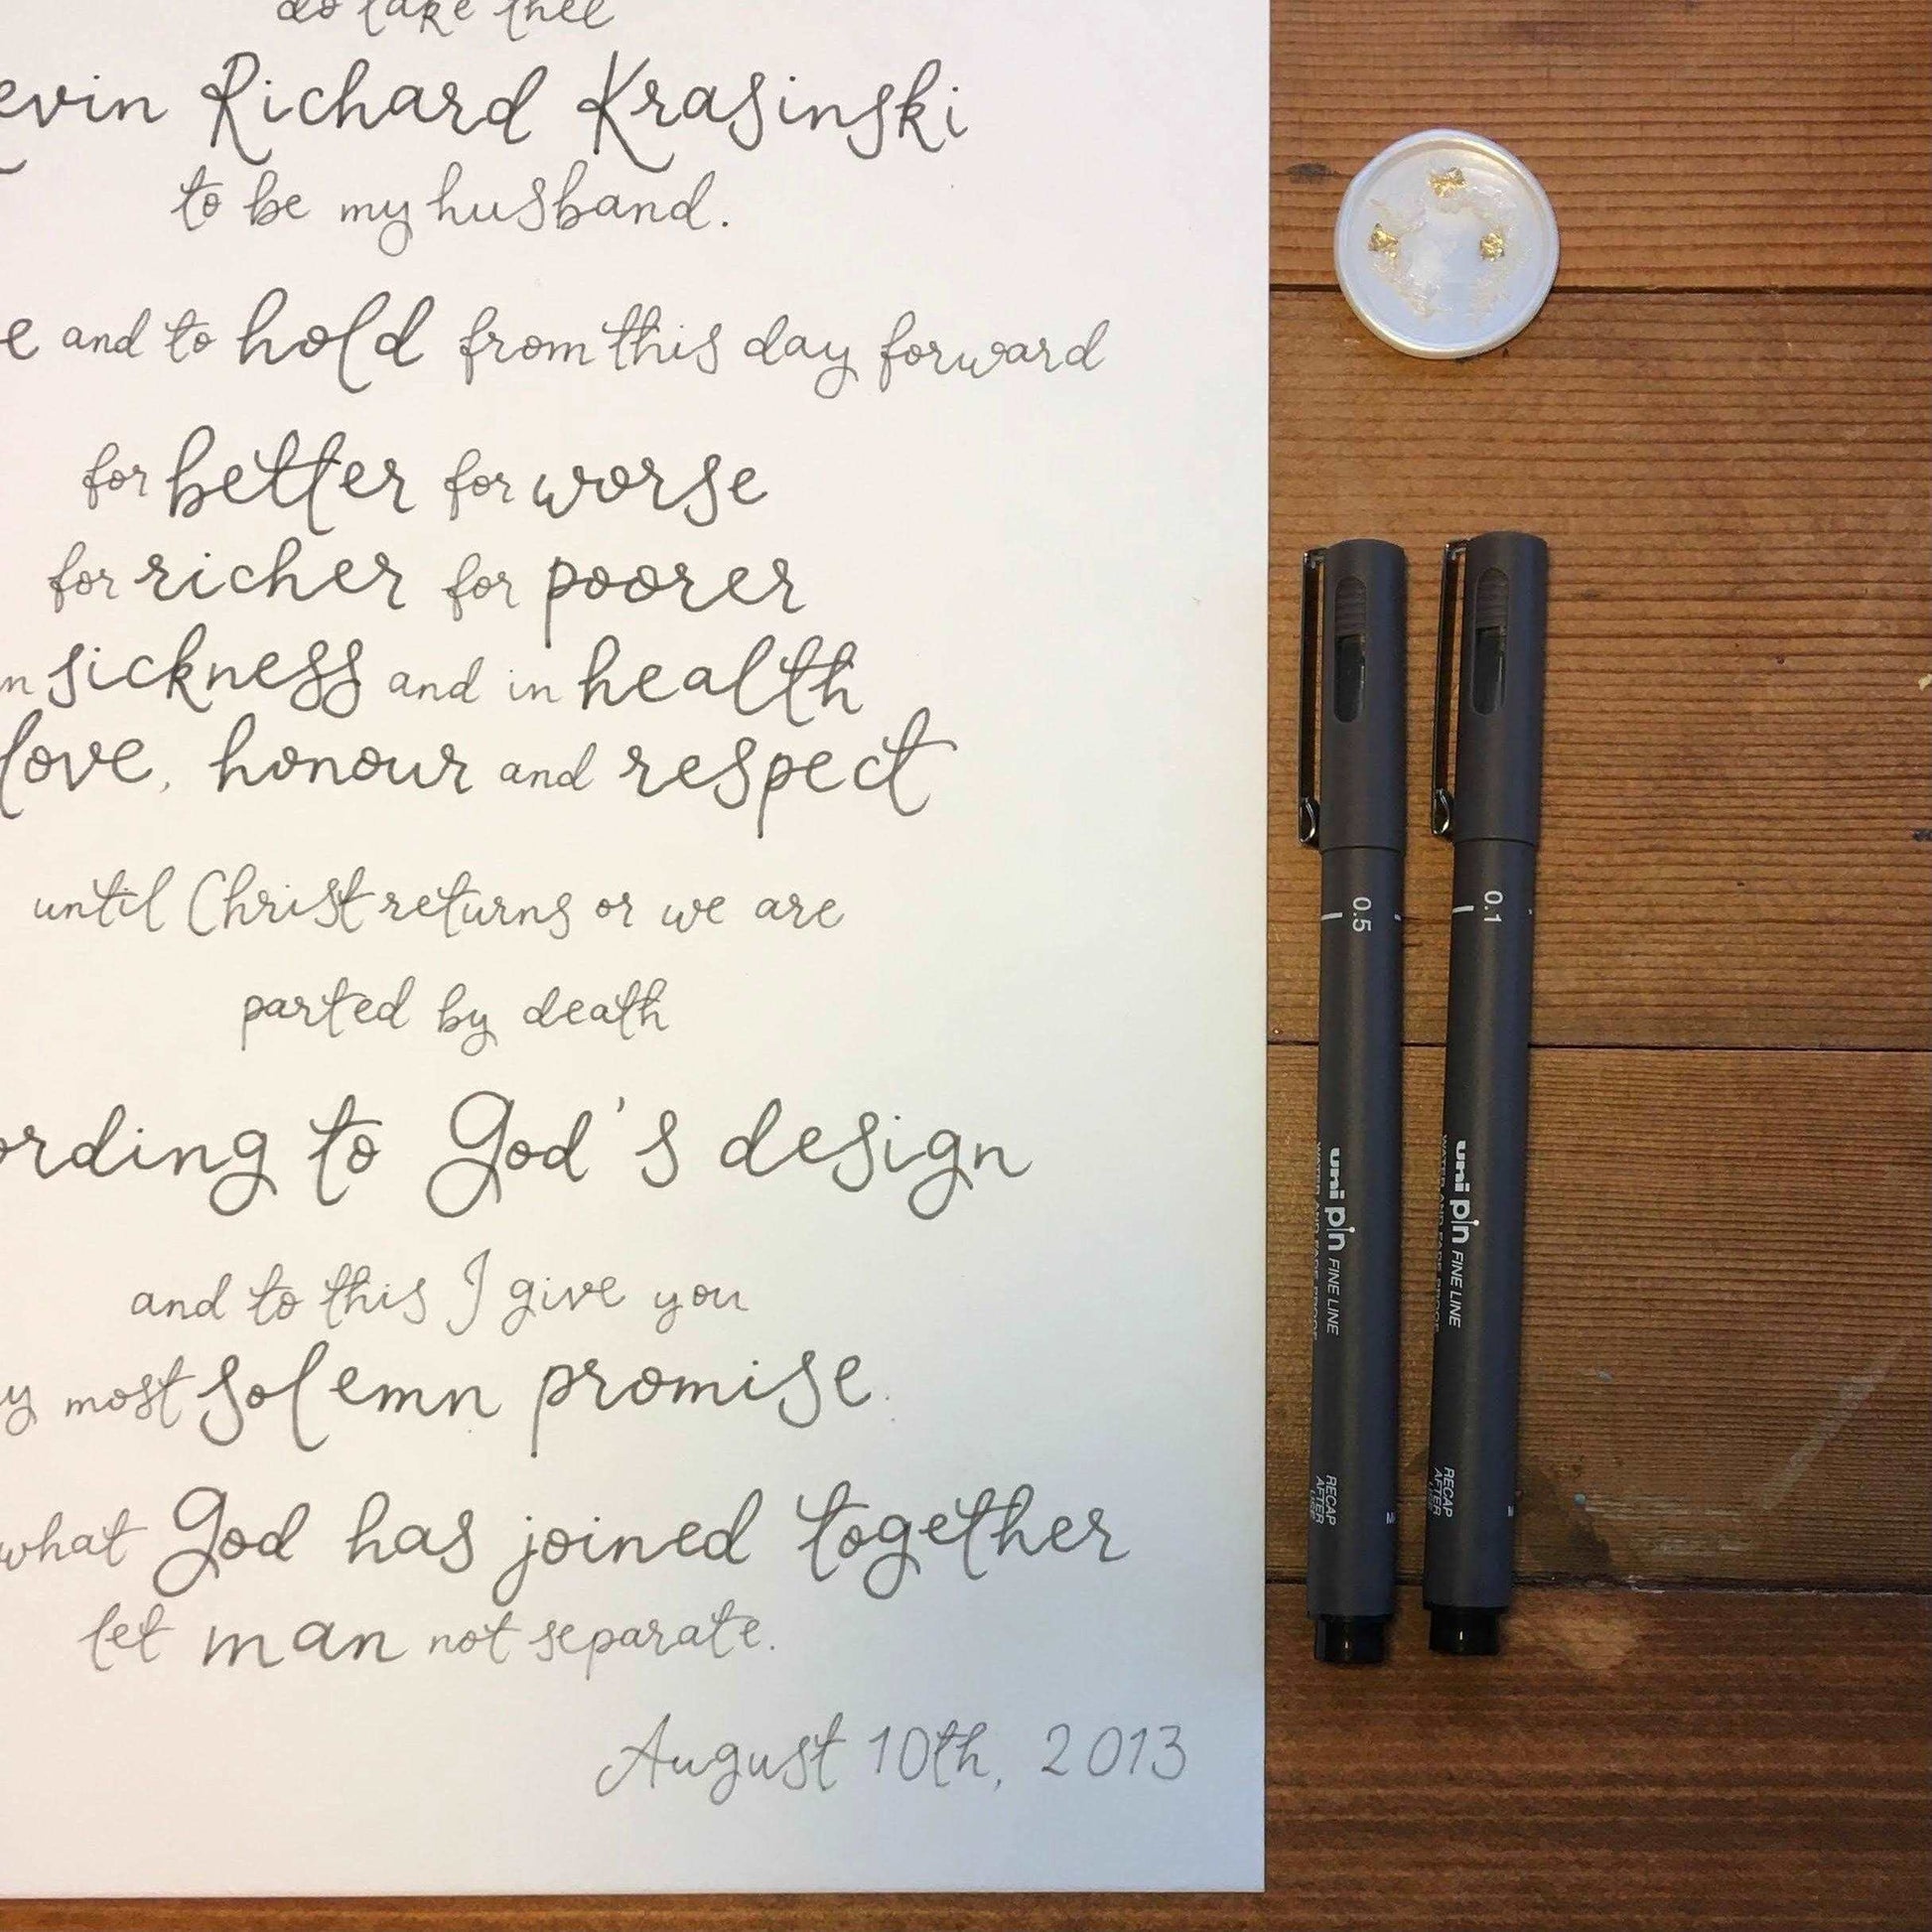 do take thee
evin Richard Krasinski
to be my husband.
e and to hold from this day forward
for better for worse
for richer for poorer
n sickness and in health
love, honour and respect
until Christ returns or we are
parted by death
ording to God's design
and to this I give you
y most solemn promise.
what God has joined together
let man not separate.
August 10th, 2013
0.5
uni pin FINE LINE
WATER AND FADE PROOF
RECAP
AFTER
USE
0.1
uni pin FINE LINE
WATER AND FADE PROOF
RECAP
AFTER
USE